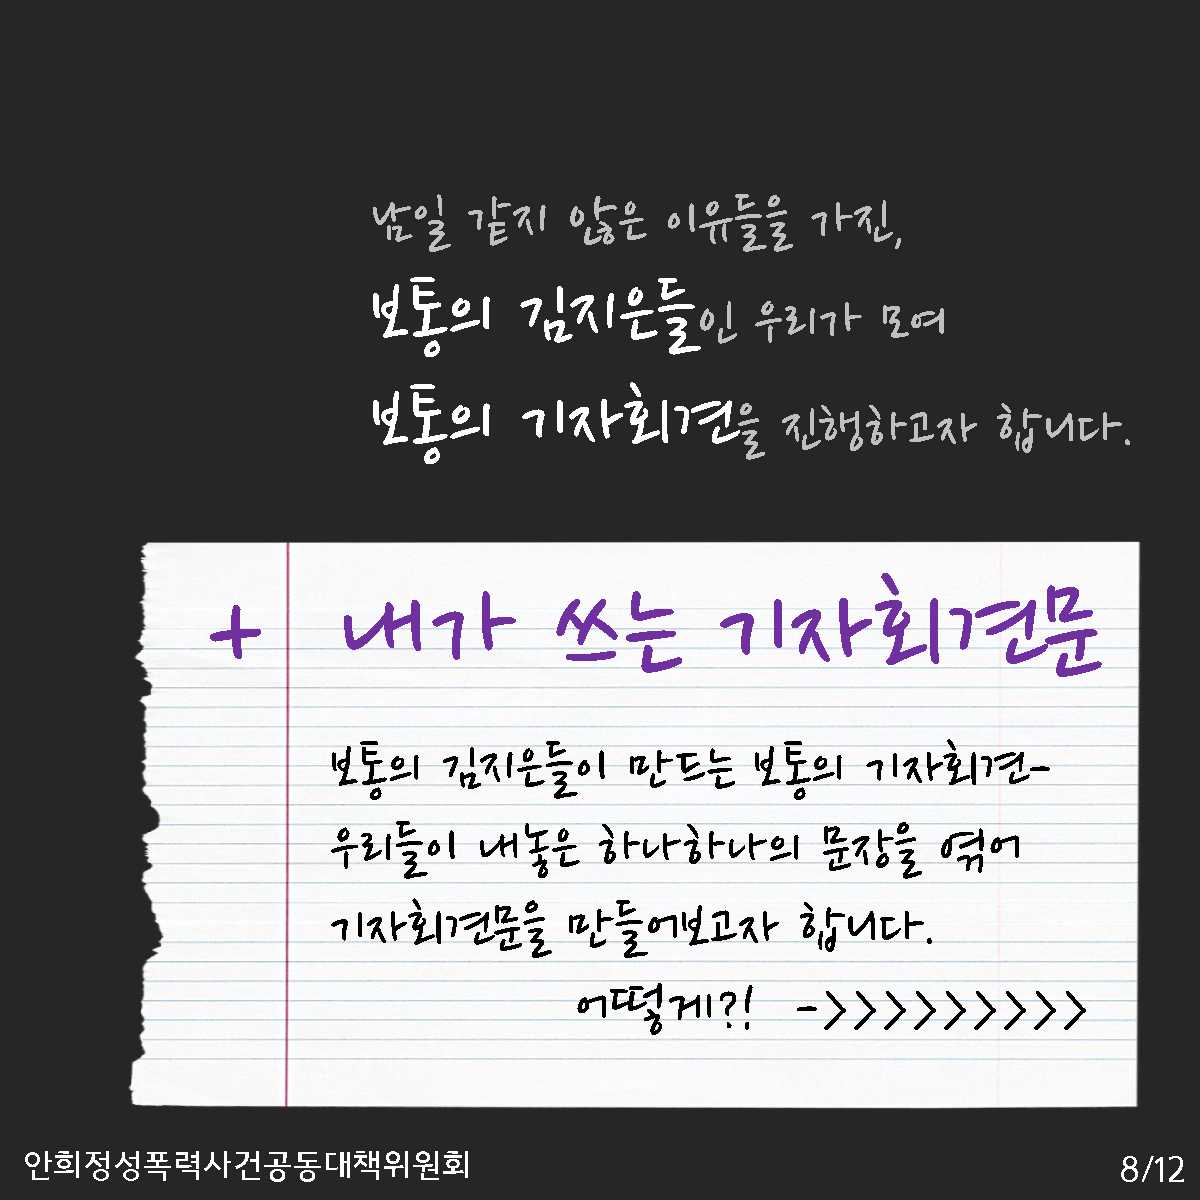 남일 같지 않은 이유들을 가진,
보통의 김지은들인 우리가 모여
보통의 기자회견을 진행하고자 합니다.
+ 내가 쓰는 기자회견문
보통의 김지은들이 만드는 보통의 기자회견-
우리들이 내놓은 하나하나의 문장을 엮어
기자회견문을 만들어보고자 합니다.
어떻게?! ->>>>>>>>>
안희정성폭력사건공동대책위원회
8/12